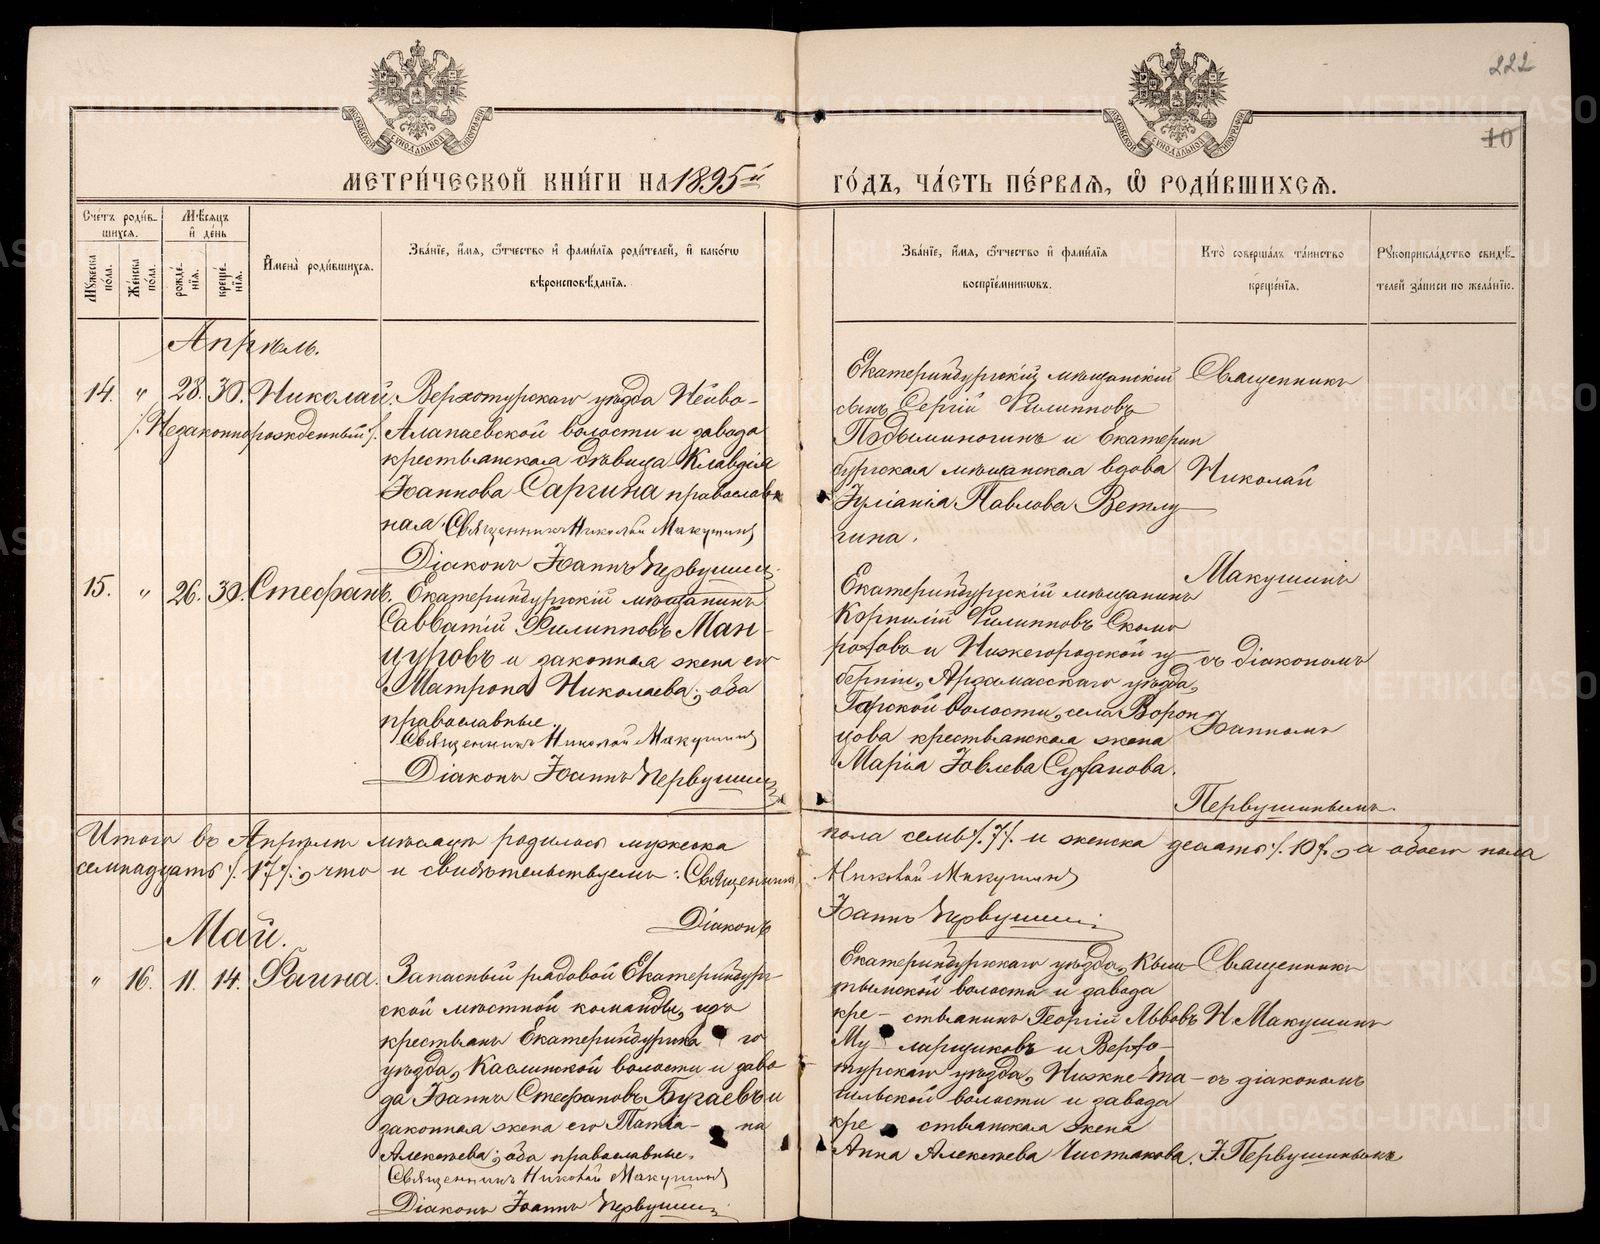 222
10
МЕТРИ́ЧЕСКОЙ КНИ́ГИ НА 1895й
ГО́ДЪ, ЧА́СТЬ ПЕ́РВАѦ, Ѡ҆ РОДИ́ВШИХСѦ.
Сче́тъ роди́в-
шихсѧ.
Мѣ́сѧцъ
и҆ де́нь
Мꙋ́жеска по́ла.
Же́нска по́ла.
рожде́нїѧ.
креще́нїѧ.
И҆мена̀ роди́вшихсѧ.
Зва́нїе, и҆́мѧ, ѻ҆́тчество и҆ фами́лїѧ роди́телей, и҆ како́гѡ
вѣроисповѣ́данїѧ.
Зва́нїе, и҆́мѧ, ѻ҆́тчество и҆ фами́лїѧ
воспрїе́мникѡвъ.
Кто̀ соверша́лъ та́инство
креще́нїѧ.
Рꙋкоприкла́дство свидѣ́-
телей за́писи по жела́нїю.
Апрѣль.
14. " 28. 30. Николай.
/. Незаконнорожденный /.
Верхотурскаго уѣзда Нейво-
Алапаевской волости и завода
крестьянская дѣвица Клавдія
Іоаннова Саргина православ-
ная. Священникъ Николай Макушинъ
Діаконъ Іоаннъ Первушинъ
Екатеринбургскій мѣщанскій
сынъ Сергій Филипповъ
Подыминогинъ и Екатерин
бургская мѣщанская вдова
Іуліанія Павлова Ветлу-
гина.
Священникъ
Николай
Макушинъ
съ діакономъ
Іоанномъ
Первушинымъ
15. " 26. 30. Стефанъ.
Екатеринбургскій мѣщанинъ
Савватій Филипповъ Ман-
цуровъ и законная жена его
Матрона Николаева; оба
православные.
Священникъ Николай Макушинъ
Діаконъ Іоаннъ Первушинъ
Екатеринбургскій мѣщанинъ
Корнилій Филипповъ Скомо
роховъ и Нижегородской гу-
берніи, Ардамасскаго уѣзда,
волости, села Ворон
цова крестьянская жена
Марія Іовлева Суханова.
Итого въ Апрѣлѣ мѣсяцѣ родилось мужеска
пола семь /. 7 /. и женска десять /. 10 /., а обоего пола
семнадцать /. 17 /.; что и свидѣтельствуемъ: Священникъ
Николай Макушинъ
Діаконъ
Іоаннъ Первушинъ
Май.
" 16. 11. 14. Фаина.
Запасный рядовой Екатеринбург-
ской мѣстной команды, изъ
крестьянъ Екатеринбургска го
уѣзда, Каслинской волости и заво-
да Іоаннъ Стефановъ Бугаевъ и
законная жена его Татіа- на
Алексѣева; оба православные.
Священникъ Николай Макушинъ
Діаконъ Іоаннъ Первушинъ
Екатеринбургскаго уѣзда, Кыш
тымской волости и завода
кре- стьянинъ Георгій Львовъ
Му ларщиковъ и Верхо-
турскаго уѣзда, Нижне-Та-
гильской волости и завода
кре стьянская жена
Анна Алексѣева Чистякова.
Священникъ
Н. Макушинъ
съ діакономъ
І. Первушинымъ
METRIKI.GASO-URAL.RU